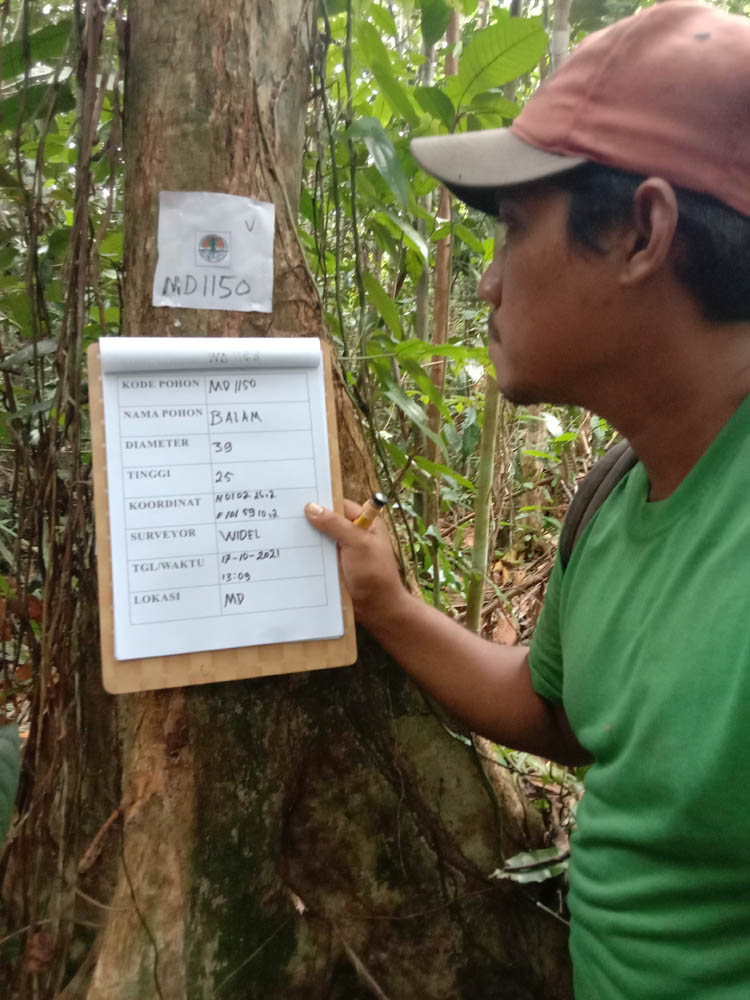 V
MD1150
KODE POHON MD 1150
NAMA POHON BALAM
DIAMETER 39
TINGGI 25
KOORDINAT N 01 02 26,2
E 101 59 10,2
SURVEYOR WIDEL
TGL/WAKTU 17-10-2021
13:09
LOKASI MD